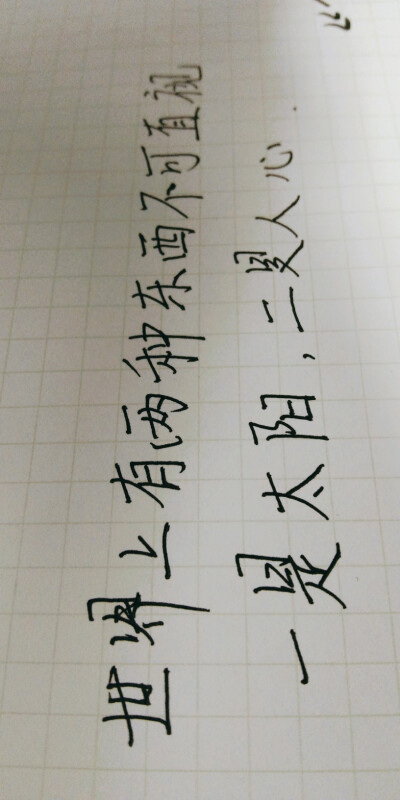 世界上有两种东西不可直视
一是太阳，二是人心.